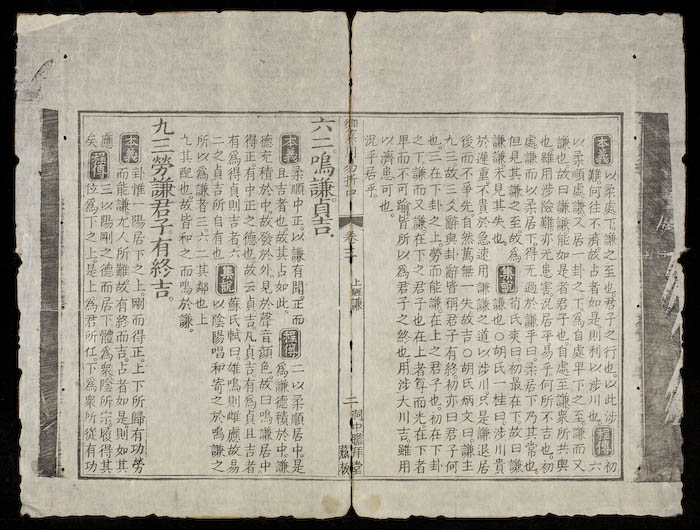 本義 以柔處下謙之至也君子之行也以此涉
難何往不濟故占者如是則利以涉川也 程傳 初六
以柔順處謙又居一卦之下為自處卑下之至謙而又
謙也故曰謙謙能如是者君子也自處至謙衆所共與
也雖用涉險難亦无患害況居平易乎何所不吉也初
處謙而以柔居下得无過於謙乎曰柔居下乃其常也
但見其謙之至故為
謙謙未見其失也 集説 荀氏爽曰初最在下故曰謙
謙也○胡氏一桂曰涉川貴
於遲重不貴於急速用謙謙之道以涉川只是謙退居
後而不爭先自然萬無一失故吉○胡氏炳文曰謙主
九三故三爻辭與卦辭皆稱君子有終初亦曰君子何
也三在下卦之上勞而能謙在上之君子也初在下卦
之下謙而又謙在下之君子也在上者尊而光在下者
卑而不可踰皆所以為君子之終也用涉大川吉雖用
以濟患可也
況平居乎
卷三
上經謙
二
六二鳴謙貞吉
本義 柔順中正以謙有聞正而
且吉者也故其占如此 程傳 二以柔順居中是
為謙德積於中謙
德充積於中故發於外見於聲音顏色故曰鳴謙居中
得正有中正之德也故云貞吉凡貞吉有為貞且吉者
有為得貞則吉者六
二之貞吉所自有也 集説 蘇氏軾曰雄鳴則雌應故易
以陰陽唱和寄之於鳴謙之
所以為謙者三六二其鄰也上
九其配也故皆和之而鳴於謙
九三勞謙君子有終吉
本義 卦惟一陽居下之上剛而得正上下所歸有功勞
而能謙尤人所難故有終而吉占者如是則如其
應矣 程傳 三以陽剛之德而居下體為衆陰所宗履得其
位為下之上是上為君所任下為衆所從有功